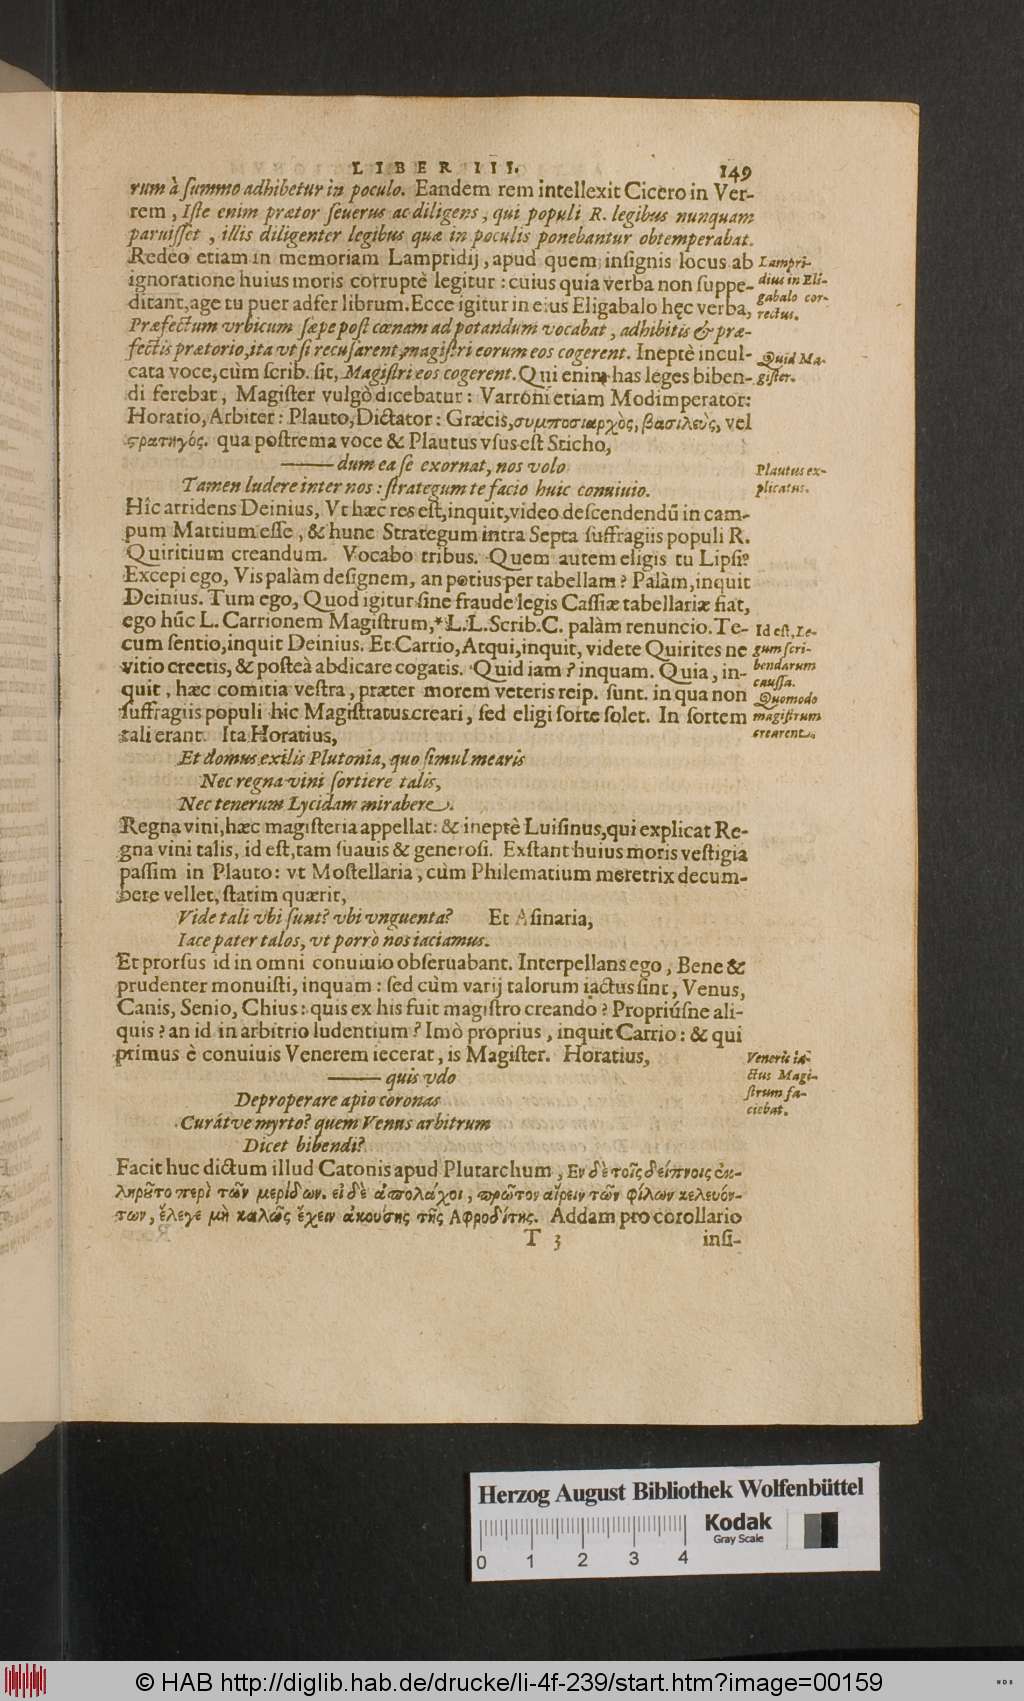 LIBER III. 149
rum à summo adhibetur in poculo. Eandem rem intellexit Cicero in Ver-
rem, Iste enim prætor seuerus ac diligens, qui populi R. legibus nunquam
paruisset, illis diligenter legibus quæ in poculis ponebantur obtemperabat.
Redeo etiam in memoriam Lampridij, apud quem insignis locus ab
ignoratione huius moris corruptè legitur: cuius quia verba non suppe-
ditant, age tu puer adfer librum. Ecce igitur in eius Eligabalo hęc verba,
Præfectum vrbicum sæpe post cœnam ad potandum vocabat, adhibitis & præ-
fectis prætorio, ita vt si recusarent, magistri eorum eos cogerent. Ineptè incul-
cata voce, cùm scrib. sit, Magistri eos cogerent. Qui enim has leges biben-
di ferebat, Magister vulgò dicebatur: Varroni etiam Modimperator:
Horatio, Arbiter: Plauto, Dictator: Græcis, συμποσιαρχὸς, βασιλεὺς, vel
στρατηγός. qua postrema voce & Plautus vsus est Sticho,
—— dum ea se exornat, nos volo
Tamen ludere inter nos: strategum te facio huic conuiuio.
Hîc arridens Deinius, Vt hæc res est, inquit, video descendendū in cam-
pum Martium esse, & hunc Strategum intra Septa suffragiis populi R.
Quiritium creandum. Vocabo tribus. Quem autem eligis tu Lipsi?
Excepi ego, Vis palàm designem, an potius per tabellam? Palàm, inquit
Deinius. Tum ego, Quod igitur sine fraude legis Cassiæ tabellariæ fiat,
ego hūc L. Carrionem Magistrum, * L. L. Scrib. C. palàm renuncio. Te-
cum sentio, inquit Deinius. Et Carrio, Atqui, inquit, videte Quirites ne
vitio creetis, & posteà abdicare cogatis. Quid iam? inquam. Quia, in-
quit, hæc comitia vestra, præter morem veteris reip. sunt. in qua non
suffragiis populi hic Magistratus creari, sed eligi sorte solet. In sortem
tali erant. Ita Horatius,
Et domus exilis Plutonia, quo simul mearis
Nec regna vini sortiere talis,
Nec tenerum Lycidam mirabere.
Regna vini, hæc magisteria appellat: & ineptè Luisinus, qui explicat Re-
gna vini talis, id est, tam suauis & generosi. Exstant huius moris vestigia
passim in Plauto: vt Mostellaria, cùm Philematium meretrix decum-
bere vellet, statim quærit,
Vide tali vbi sunt? vbi vnguenta? Et Asinaria,
Iace pater talos, vt porrò nos iaciamus.
Et prorsus id in omni conuiuio obseruabant. Interpellans ego, Bene &
prudenter monuisti, inquam: sed cùm varij talorum iactus sint, Venus,
Canis, Senio, Chius: quis ex his fuit magistro creando? Propriúsne ali-
quis? an id in arbitrio ludentium? Imò proprius, inquit Carrio: & qui
primus è conuiuis Venerem iecerat, is Magister. Horatius,
—— quis vdo
Deproperare apio coronas
Curátve myrto? quem Venus arbitrum
Dicet bibendi?
Facit huc dictum illud Catonis apud Plutarchum, Εν δὲ τοῖς δείπνοις ἐκ-
ληροῦτο περὶ τῶν μερίδων. εἰ δὲ ἀπολάχοι, πρῶτον αἴρειν τῶν φίλων κελευόν-
των, ἔλεγε μὴ καλῶς ἔχειν ἀκούσης τῆς Αφροδίτης. Addam pro corollario
T 3 insi-
Lampri-
dius in Eli-
gabalo cor-
rectus.
Quid Ma-
gister.
Plautus ex-
plicatus.
Id est, Le-
gum scri-
bendarum
caussa.
Quomodo
magistrum
crearent.
Veneris ia-
ctus Magi-
strum fa-
ciebat.
Herzog August Bibliothek Wolfenbüttel
Kodak
Gray Scale
0 1 2 3 4
© HAB http://diglib.hab.de/drucke/li-4f-239/start.htm?image=00159